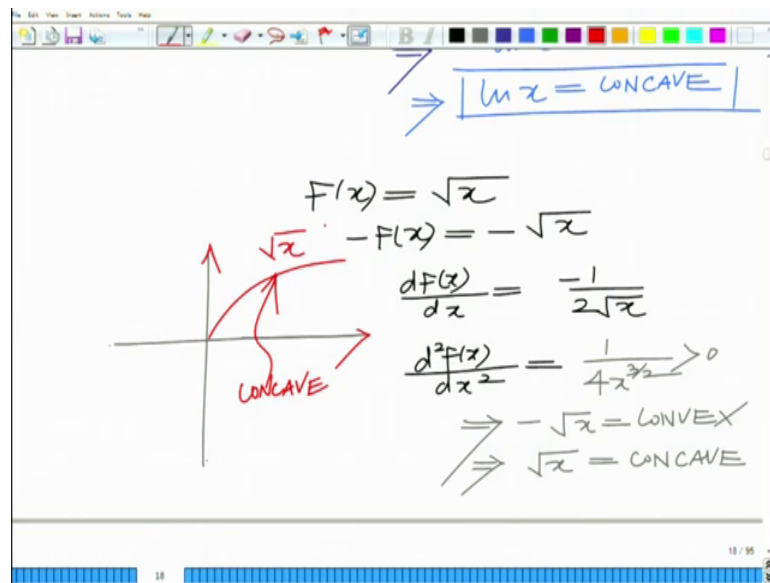 File Edit View Insert Actions Tools Help
B I
⇒ ln x = CONCAVE
F(x) = √x
-F(x) = - √x
√x
dF(x)/dx = -1/2√x
d²F(x)/dx² = 1/4x^3/2 > 0
CONCAVE
⇒ - √x = CONVEX
⇒ √x = CONCAVE
18 / 95
18